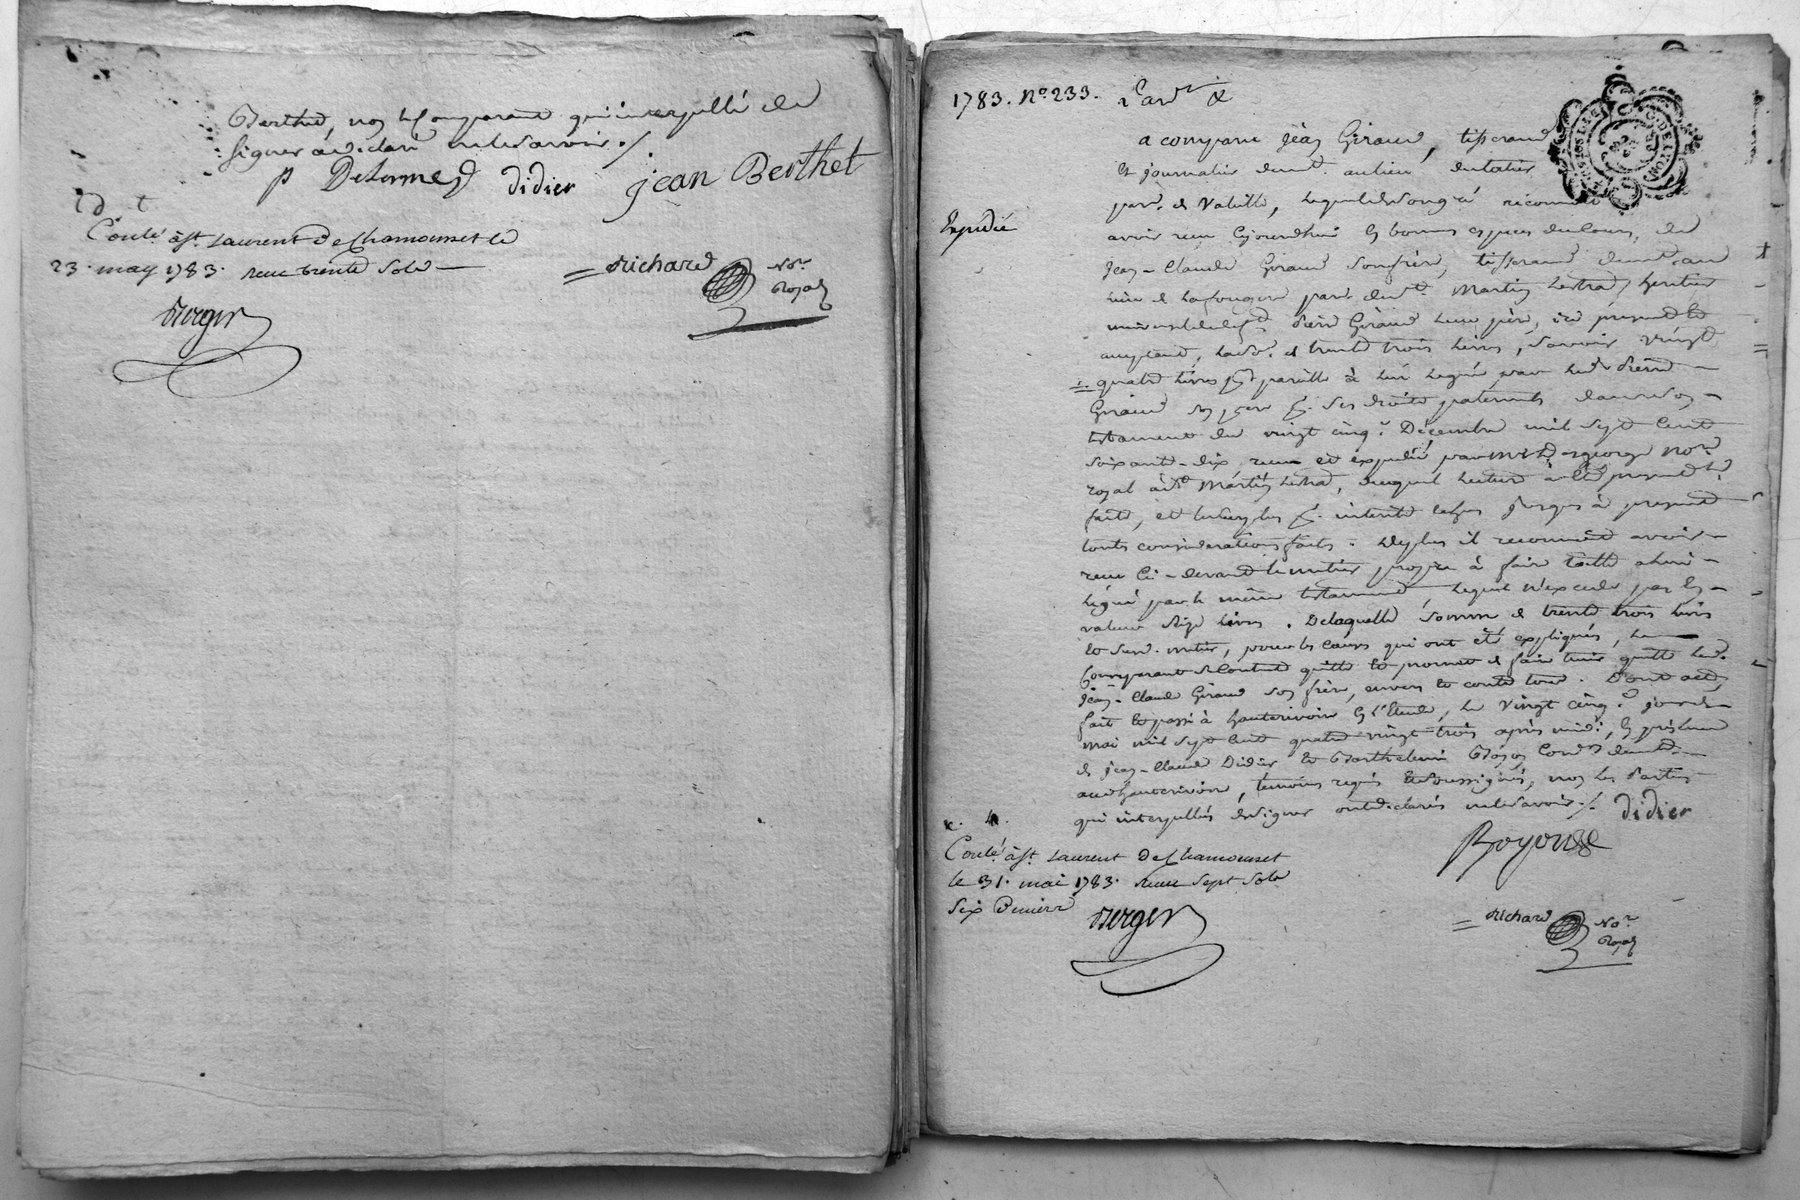 Berthet, non le Comparant qui interpellé de
signer a declaré ne le savoir ./.
p Delorme
didier
jean Berthet
Conlé à St. Laurent De Chamousset le
23. may 1783. reçu trente sols
Berger
Richard
No.re
Royal
1783. No. 233.
a comparu jean Giraud, tisserand
et journalier demt. au lieu
parr. de Valeille, lequel de son gré reconnoit
Expedié
avoir reçu cejourdhui en bonnes especes du cours, de
jean-Claude Giraud son frère, tisserand demt. au
lieu de la fougere parr. de St. Martin Lestra, heritier
universel de defft. Pierre Giraud leur père, ici present et
acceptant, la so.e de trente trois livres, savoir vingt
quatre livres pr. pareille à lui leguée par led. Pierre
Giraud son père pr. ses droits paternels dans son
testament du vingt cinq. Décembre mil sept cent
soixante-dix, reçu et expedié par Me George no.re
royal à St. Martin Lestra, duquel lecture a été presentemt.
faite, et le surplus pr. interets echus jusques à present
toutes considerations faites. De plus il reconnoit avoir
reçu ci-devant le metier propre à faire toille a lui
legué par le même testament, lequel n'excede pas en
valeur seize livres. De laquelle somme de trente trois livres
et dud. metier, pour les causes qui ont été expliqués, le
Comparant se contente quitte et promet de faire tenir quitte led.
jean-Claude Giraud son frère, envers et contre tous. Dont acte,
fait et passé à hauterivoire en l'Etude, le vingt cinq.e jour de
mai mil sept cent quatre vingt trois après midi, en présence
de jean-Claude Didier et Barthelemi Cord.er demt.
aud. hauterivoire, temoins requis et soussignés, non les parties
qui interpellés de signer ont declarés ne le savoir ./.
didier
Conlé à St. Laurent De Chamousset
le 31. mai 1783. reçu sept sols
six deniers
Berger
Richard
No.re
Royal